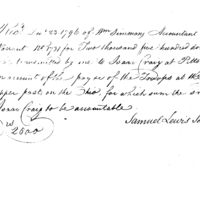 Rec'd Jan 22. 1796 of Wm Simmons Accountant
Warrant No 771 for Two thousand five hundred
to be remitted by me to Isaac Craig at Pitts
on account of the pay &c of the Troops at the
upper posts on the Ohio, for which sum the
Isaac Craig to be accountable
2500
Samuel Lewis